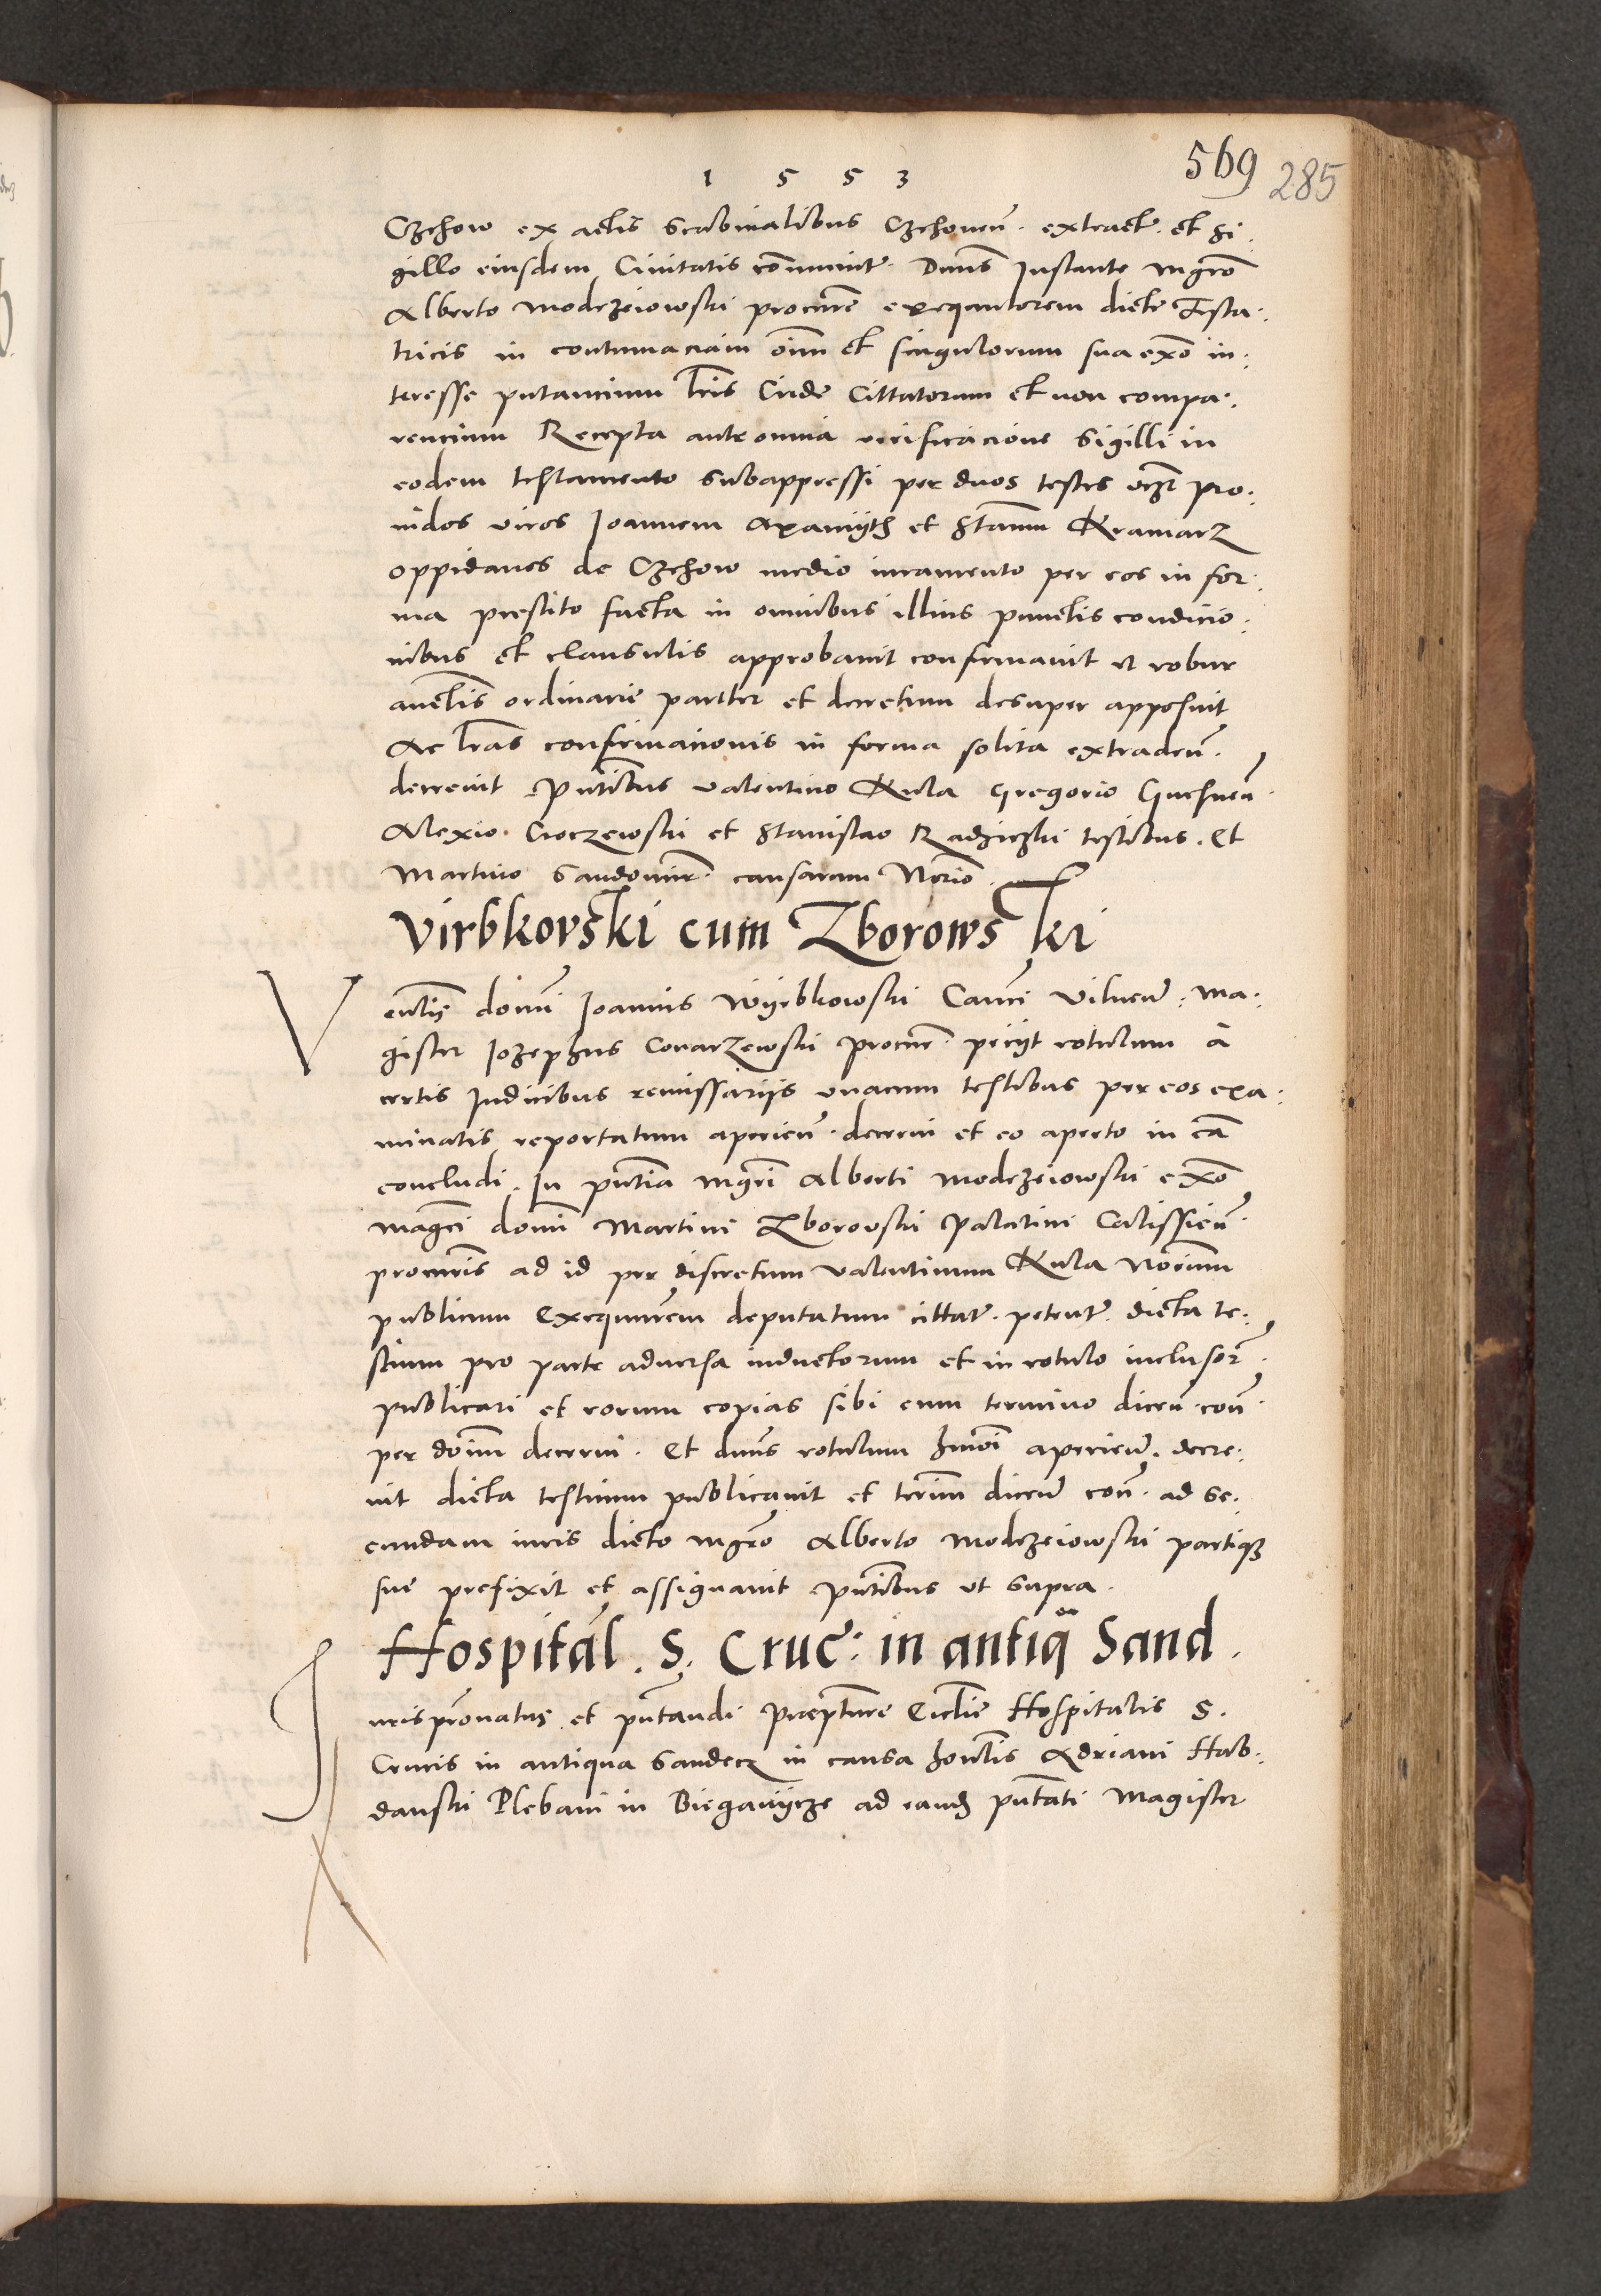 1 5 5 3
569 285
Czchow ex actis scabinalibus Czchouieñ. extract. et si:
gillo eiusdem Ciuitatis cõmunit. Dnus Instante mgrõ
Alberto Modrzeiowski procure exequutorem dictę Testa:
tricis in contumaciam oĩm et singulorum sua exõ in:
teresse putancium lr̃is Citatorum et non compa:
rencium Recepta ante omnia verificacione Sigilli in
eodem testamento subappressi per duos testes vcz pro:
uidos viros Joannem Axamijth et Stãm Kramarz
oppidanos de Czchow medio iuramento per eos in for:
ma prestito facta in omnibus illius punctis condicio:
nibus et clausulis approbauit confirmauit et robur
auctis ordinarie pariter et decretum desuper apposuit
Ac lr̃as confirmacionis in forma solita extradeñ.
decreuit Pñtibus Valentino Kula Gregorio Gnesneñ
Alexio Croczewski et Stanislao Radziczki testibus. Et
Martino Sandomir. causarum Nõrio.
Virbkovski cum Zborowski
Ventis domi Joannis Wyrbkowski Canci Vilneñ: Ma:
gister Jozephus Conarzewski procur. petijt rotulum a
certis Judicibus remissarijs vnacum testibus per eos exa:
minatis reportatum aperieñ. decerni et eo aperto in cã
concludi. In pñtia mgri Alberti Modrzeiowski exõ
magci domi Martini Zborovski Palatini Calissieñ.
procuris ad id per discretum Valentinum Kula Norium
publicum exequurem deputatum cittat. petent. dicta te:
stium pro parte aduersa inductorum et in rotulo inclusor̃.
publicari et eorum copias sibi cum termino diceñ. con
per doĩm decerni. Et dnus rotulum hmoi aperieñ. decre:
uit dicta testium publicauit et termi diceñ con. ad se:
cundam iuris dicto mgro Alberto Modrzeiowski partiqz
sue prefixit et assignauit pñtibus ut supra.
Hospital. S. Cruc: in antiqa Sand.
Jurispronatus et pñtandi Præpturę Ecclię Hospitalis S.
Crucis in antiqua Sandecz in causa hontis Adriani Hab:
danski Plebani in Bieganijcze ad eandz pñtati Magister